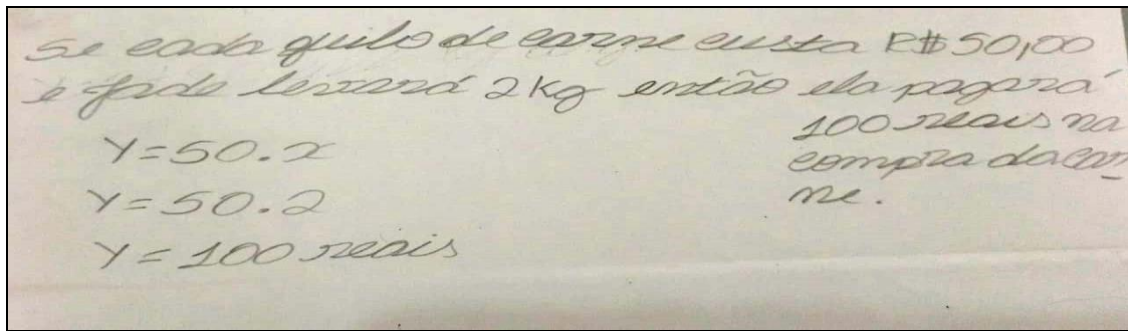 Se cada quilo de carne custa R$ 50,00
e Jade levará 2Kg então ela pagará
100 reais na
compra da car-
ne.
Y = 50.x
Y = 50.2
Y = 100 reais